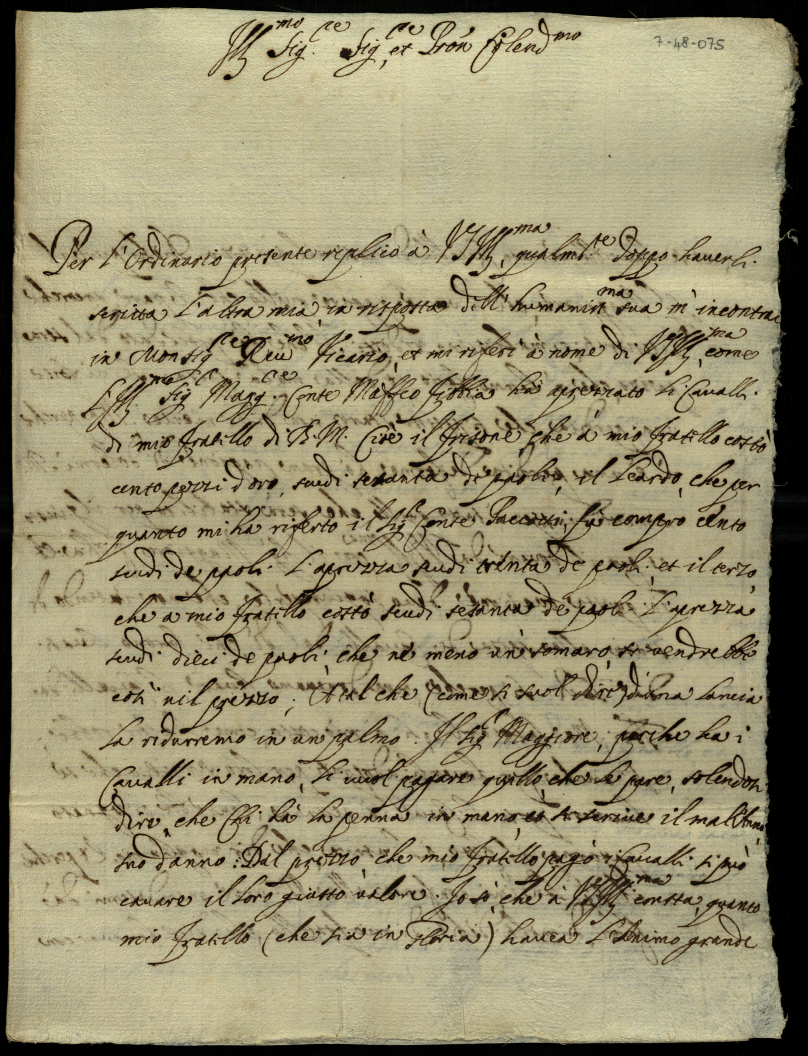 7-48-075
Ill.mo Sig.re Sig.re et Pron Colend.mo
Per l'Ordinario presente replico à VSIll.ma, qualm.te doppo haverli
scritta l'altra mia in risposta dell' humaniss.ma sua m'incontrai
in Monsig.re Rev.mo Vicario, et mi riferì à nome di VSIll.ma, come
l'Ill.mo Sig.r Magg.re Conte Maffeo ha aprezzato li Cavalli
di mio fratello di B. M. Cioè il frisone, che à mio fratello costò
cento pezzi d'oro, scudi sesanta de paoli, il Leardo, che per
quanto mi hà riferto il Sig.r Conte fù compro cento
scudi de paoli l'aprezza scudi trenta de paoli, et il terzo
che a mio fratello costò scudi sesanta de paoli l'aprezza
scudi dieci de paoli, che nè meno un somaro si vendrebbe
così vil prezzo; A tal che (come si suol dire) d'una lancia
la ridurremo in un palmo. Il Sig.r Maggiore, perche ha i
Cavalli in mano, li vuol pagare quello, che le pare, solendosi
dire, che Chi hà la penna in mano, et si scrive il mal
suo danno: Dal prezzo, che mio fratello pagò i Cavalli si può
cavare il loro giusto valore. Io sò, che à VSIll.ma consta, quanto
mio fratello (che sia in Gloria) havea l'animo grande